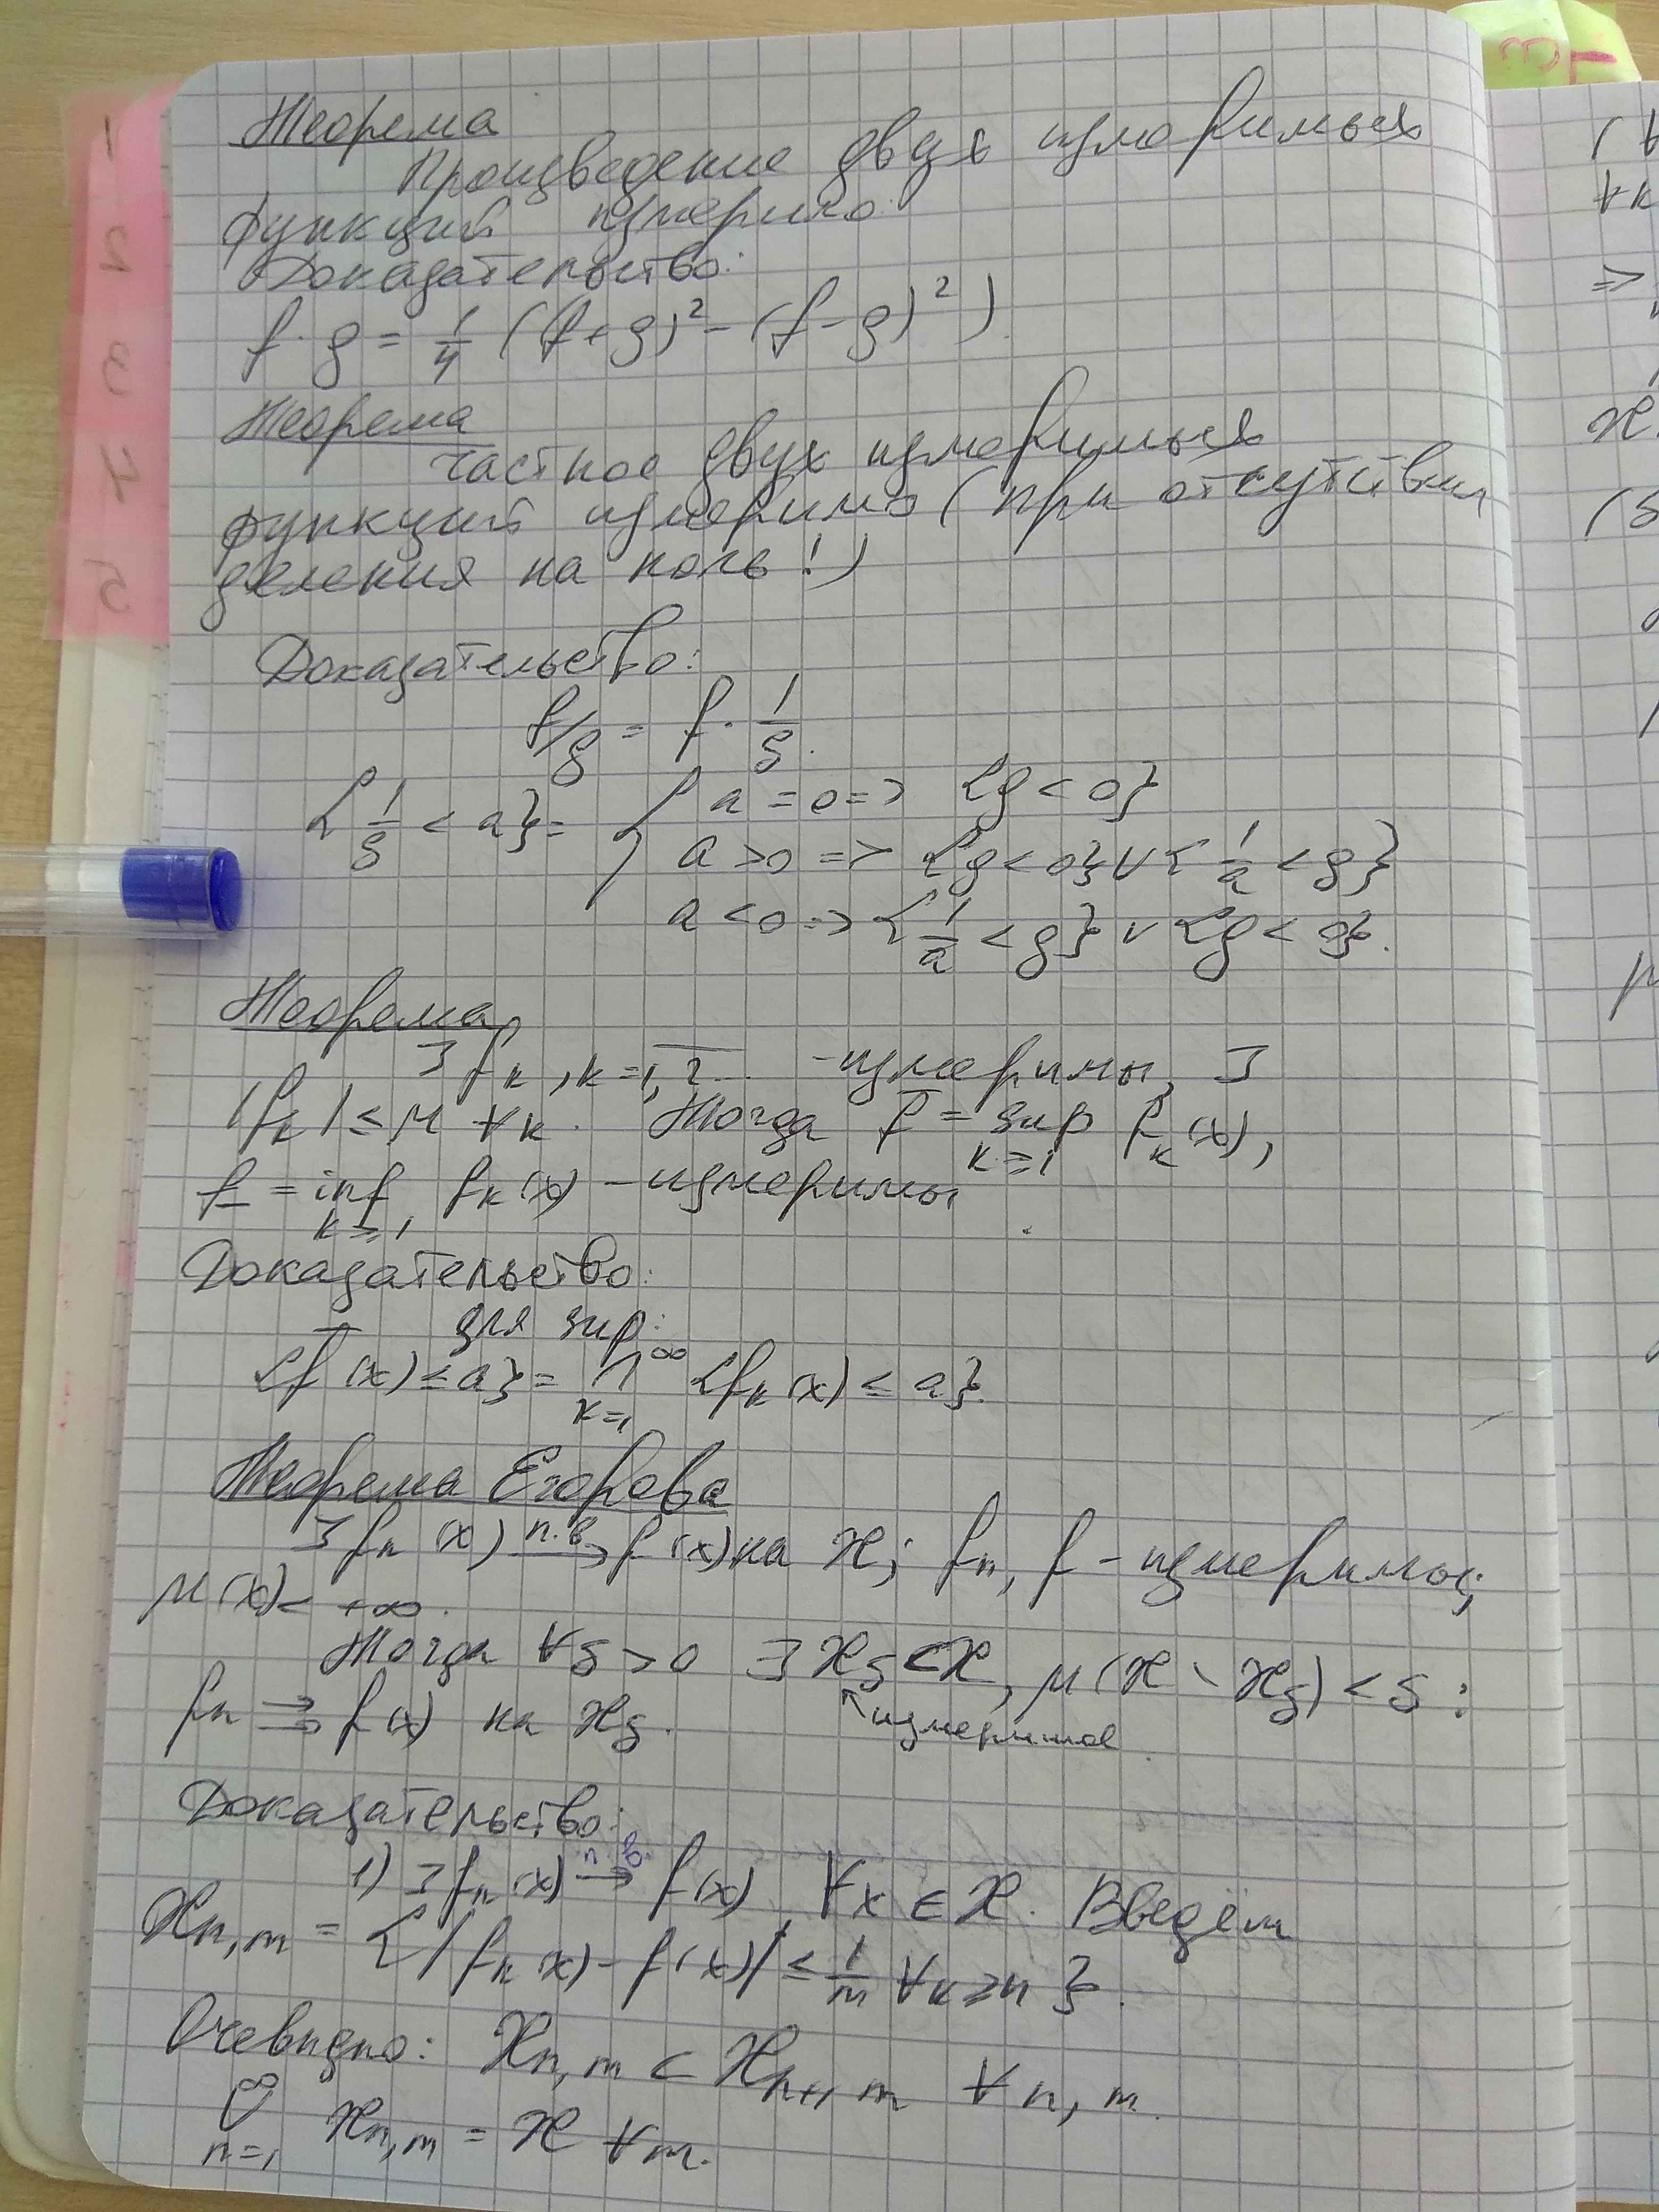 Теорема
Произведение двух измеримых
функций измеримо.
Доказательство:
f · g = 1/4 ((f+g)² - (f-g)²)
Теорема
Частное двух измеримых
функций измеримо (при отсутствии
деления на ноль!)
Доказательство:
f/g = f · 1/g.
{1/g < a} = { a = 0 => {g < 0}
a > 0 => {g < 0} ∨ {1/a < g}
a < 0 => {1/a < g} ∨ {g < 0}.
Теорема
∃ f_k, k = 1, 2... - измеримы, ∃
|f_k| ≤ M ∀k. Тогда f̅ = sup_{k≥1} f_k(x),
f̲ = inf_{k≥1} f_k(x) - измеримы
Доказательство:
для sup:
{f̅(x) ≤ a} = ∩_{k=1}^∞ {f_k(x) ≤ a}.
Теорема Егорова
∃ f_n(x) →(п.в.) f(x) на X; f_n, f - измеримы;
μ(X) < +∞.
Тогда ∀δ > 0 ∃ X_δ ⊂ X, μ(X \ X_δ) < δ :
f_n ⇉ f(x) на X_δ.
↖ измеримое
Доказательство:
1) ∃ f_n(x) →(п.в.) f(x) ∀x ∈ X. Введём
X_{n,m} = {|f_k(x) - f(x)| ≤ 1/m ∀k ≥ n}.
Очевидно: X_{n,m} ⊂ X_{n+1,m} ∀n, m.
∪_{n=1}^∞ X_{n,m} = X ∀m.
1
2
3
4
5